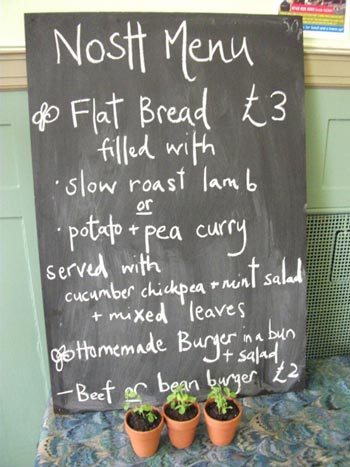 Nosh Menu
Flat Bread £3
filled with
· slow roast lamb
or
· potato + pea curry
served with
cucumber chickpea + mint salad
+ mixed leaves
Homemade Burger in a bun
+ salad
– Beef or bean burger £2